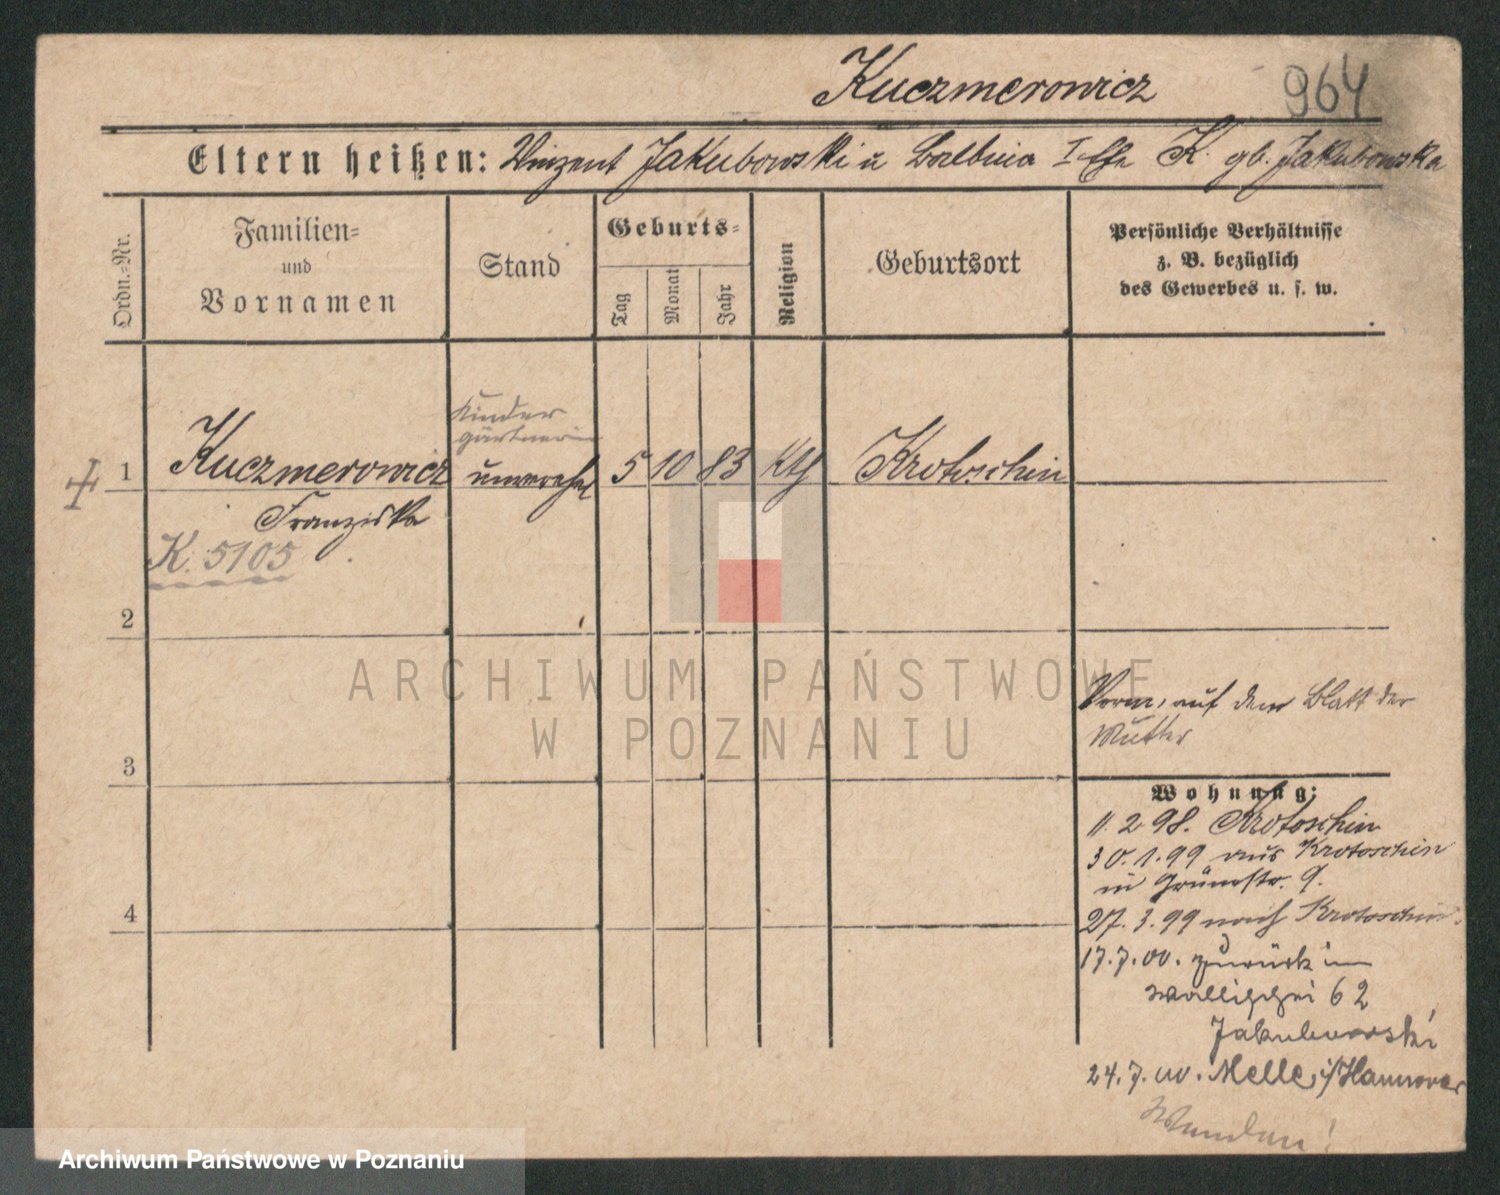 Kuczmerowicz 964
Eltern heißen: Vinzent Jakubowski u Balbina I Ehe K. gb. Jakubowska
Ordn.=Nr.
Familien=
und
Vornamen
Stand
Geburts=
Tag
Monat
Jahr
Religion
Geburtsort
Persönliche Verhältnisse
z. B. bezüglich
des Gewerbes u. s. w.
Kinder
gärtnerin
1 Kuczmerowicz unverehel 5 10 83 kth Krotoschin
Franziska
K. 5105
2
ARCHIWUM PAŃSTWOWE
W POZNANIU
Verm. auf dem Blatt der
Mutter
3
Wohnung:
11. 2 98. Krotoschin
30. 1. 99 aus Krotoschin
in Grünestr. 9.
4
27. 3. 99 nach Krotoschin.
17. 7. 00. zurück in
Wallischei 62
Jakubowski
24. 7. 00. Melle i/Hannover
Wenden!
Archiwum Państwowe w Poznaniu